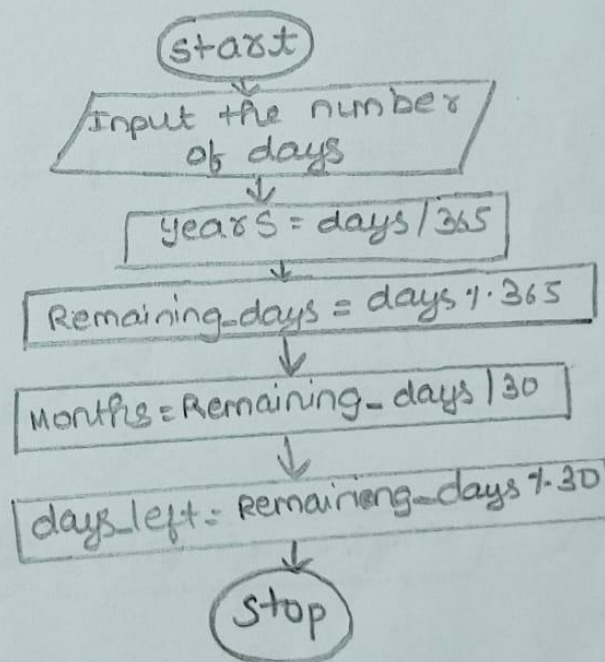 start
Input the number
of days
years = days / 365
Remaining_days = days % 365
Months = Remaining_days / 30
days_left = Remainieng_days % 30
stop